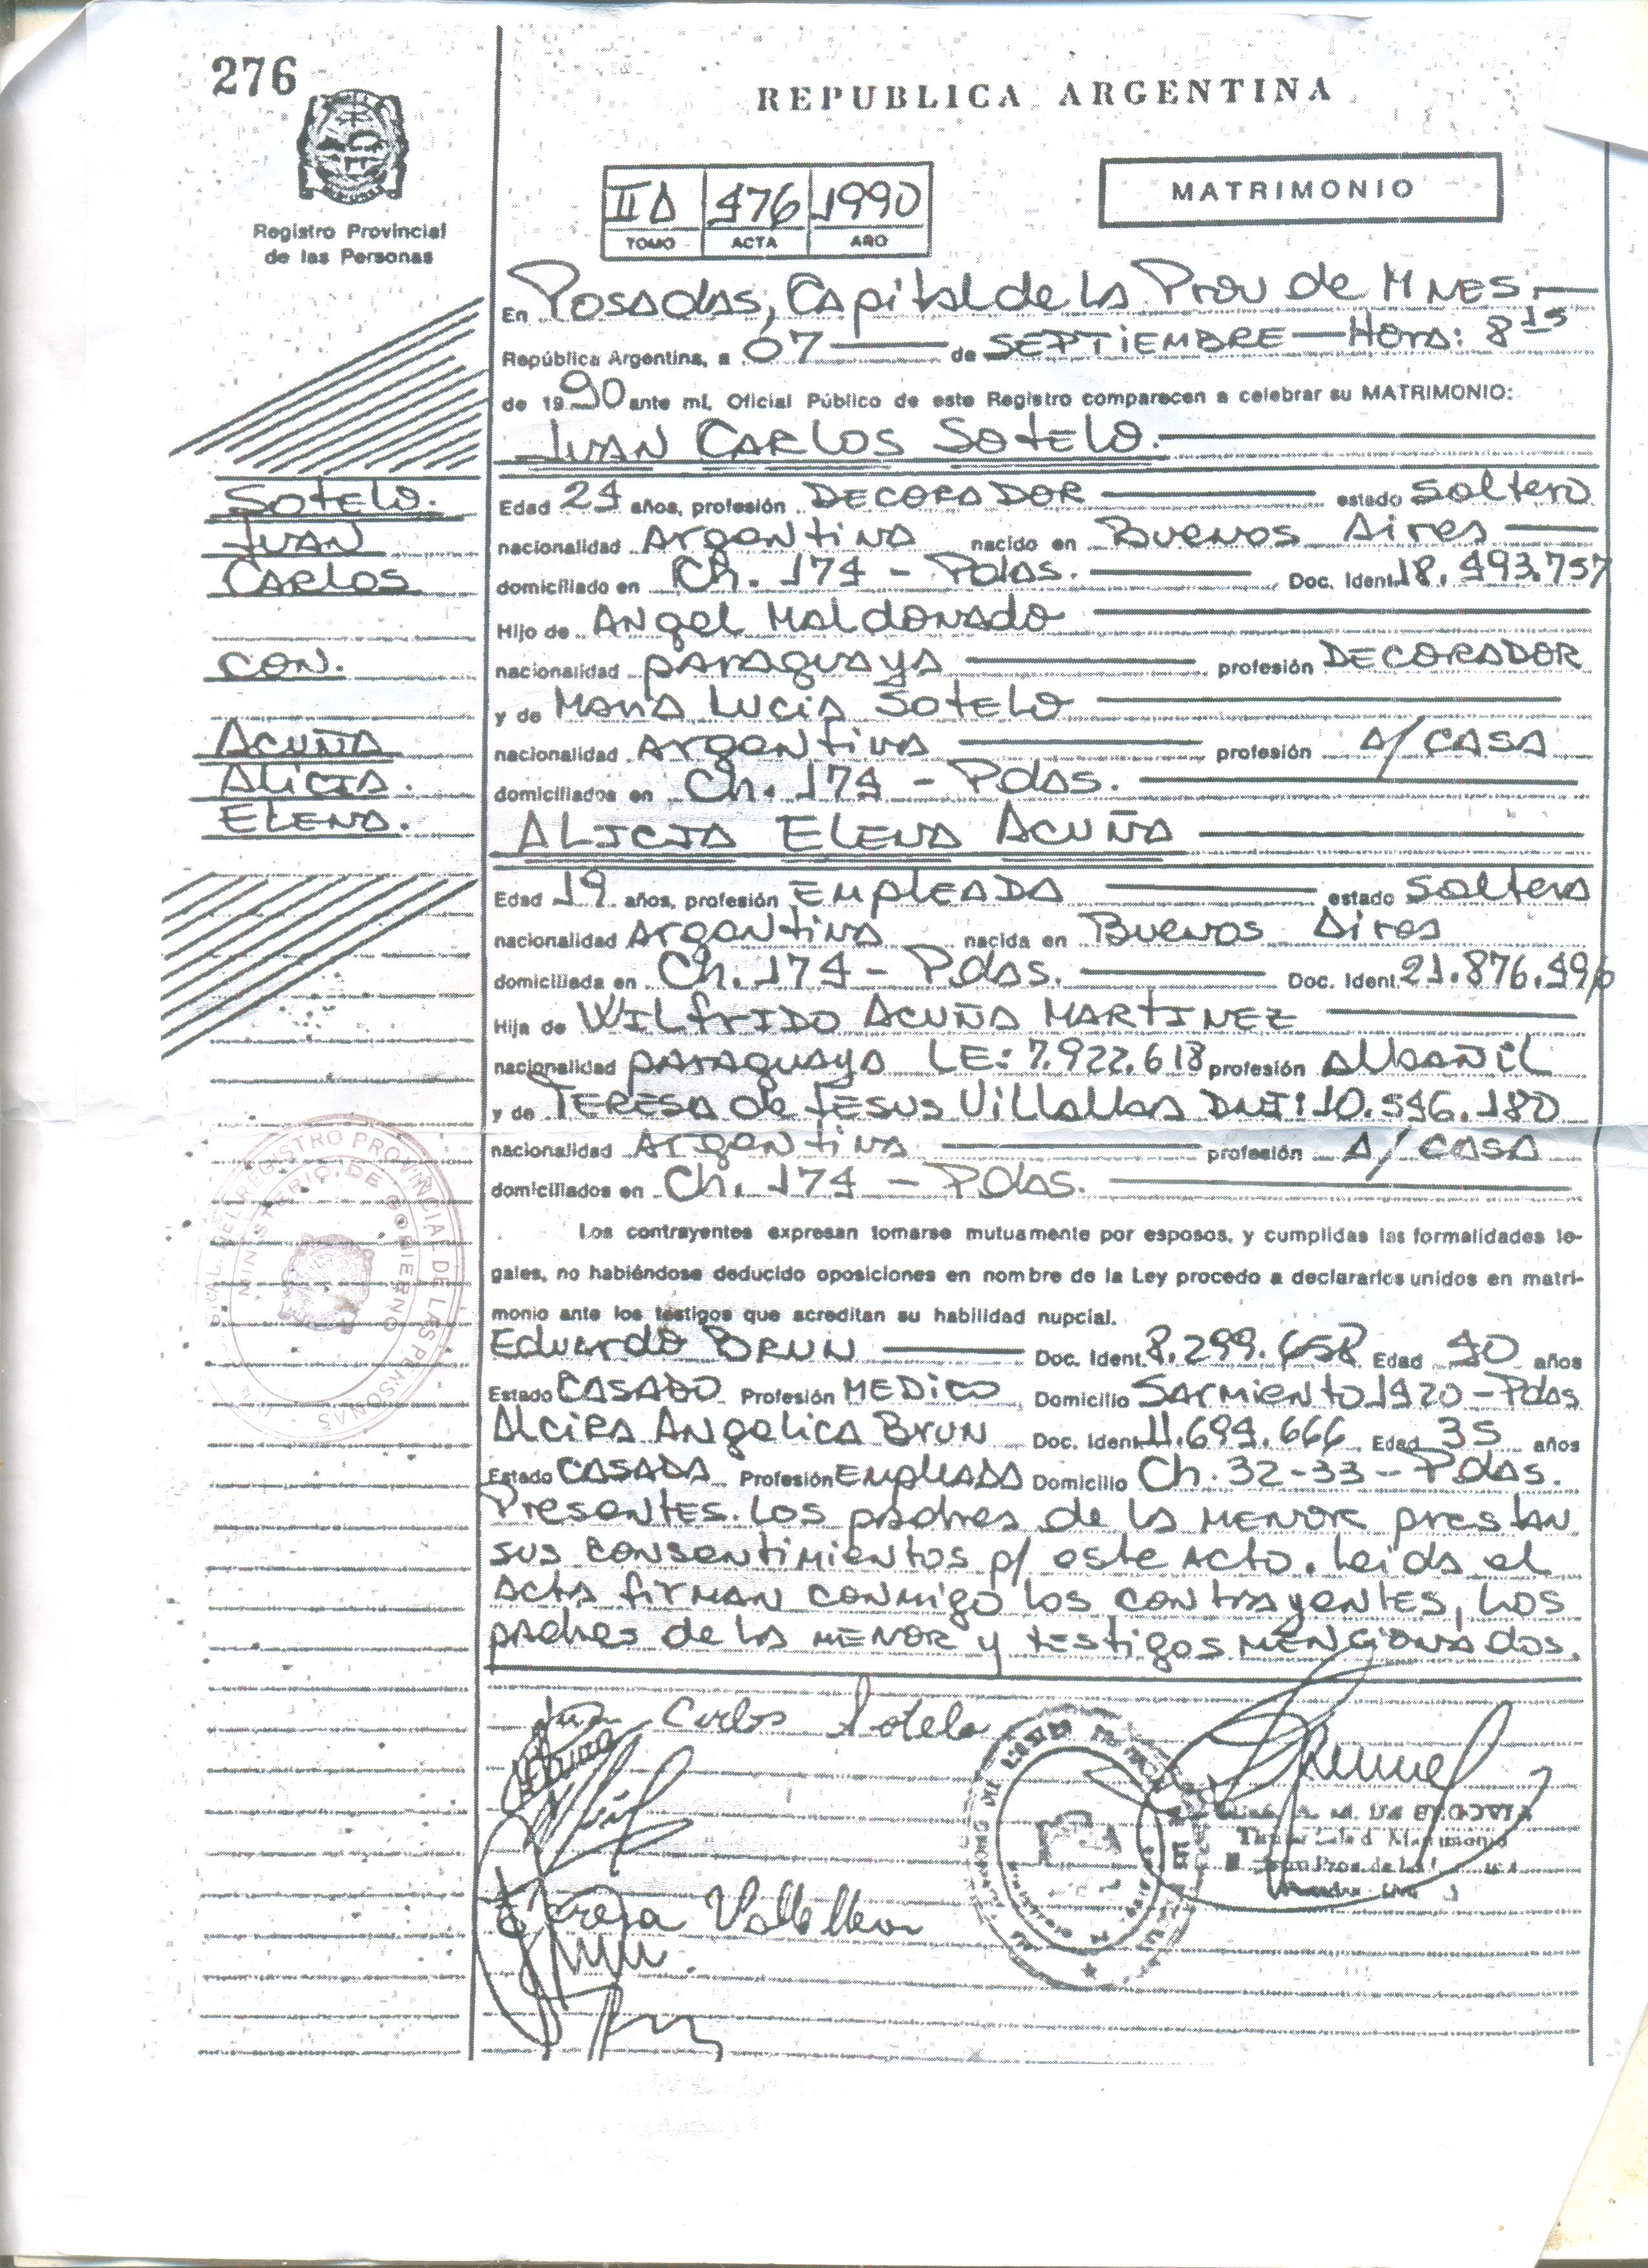 276
REPUBLICA ARGENTINA
Registro Provincial
de las Personas
II A 476 1990
TOMO ACTA AÑO
MATRIMONIO
En Posadas, Capital de la Prov de Mnes.
República Argentina, a 07 de SEPTIEMBRE — Hora: 8 15
de 1990 ante mí, Oficial Público de este Registro comparecen a celebrar su MATRIMONIO:
JUAN CARLOS SOTELO.
SOTELO.
JUAN
CARLOS
CON.
ACUÑA
ALICIA.
ELENA.
Edad 24 años, profesión DECORADOR estado Soltero
nacionalidad Argentina nacido en Buenos Aires
domiciliado en Ch. 174 - Pdas. Doc. Ident. 18.493.757
Hijo de Angel Maldonado
nacionalidad paraguaya profesión DECORADOR
y de Maria Lucia Sotelo
nacionalidad Argentina profesión A/ CASA
domiciliados en Ch. 174 - Pdas.
ALICIA ELENA ACUÑA
Edad 19 años, profesión EMPLEADA estado Soltera
nacionalidad Argentina nacida en Buenos Aires
domiciliada en Ch. 174 - Pdas. Doc. Ident. 21.876.496
Hija de WILFRIDO ACUÑA MARTINEZ
nacionalidad paraguaya LE: 7.922.618 profesión Albañil
y de TERESA de JESUS Villalba DNI: 10.546.180
nacionalidad Argentina profesión A/ CASA
domiciliados en Ch. 174 - Pdas.
Los contrayentes expresan tomarse mutuamente por esposos, y cumplidas las formalidades le-
gales, no habiéndose deducido oposiciones en nombre de la Ley procedo a declararlos unidos en matri-
monio ante los testigos que acreditan su habilidad nupcial.
Eduardo BRUN Doc. Ident. 8.299.658 Edad 40 años
Estado CASADO Profesión MEDICO Domicilio SARMIENTO 1420 - Pdas
Alcira Angelica Brun Doc. Ident. 11.694.666 Edad 35 años
Estado CASADA Profesión EMPLEADA Domicilio Ch. 32-33 - Pdas.
Presentes. Los padres de la MENOR prestan
sus consentimientos p/ este acto. Leida el
acta firman conmigo los contrayentes, los
padres de la MENOR y testigos mencionados.
REGISTRO PROVINCIAL DE LAS PERSONAS
MINISTERIO DE GOBIERNO
Juan Carlos Sotelo
Teresa Villalba